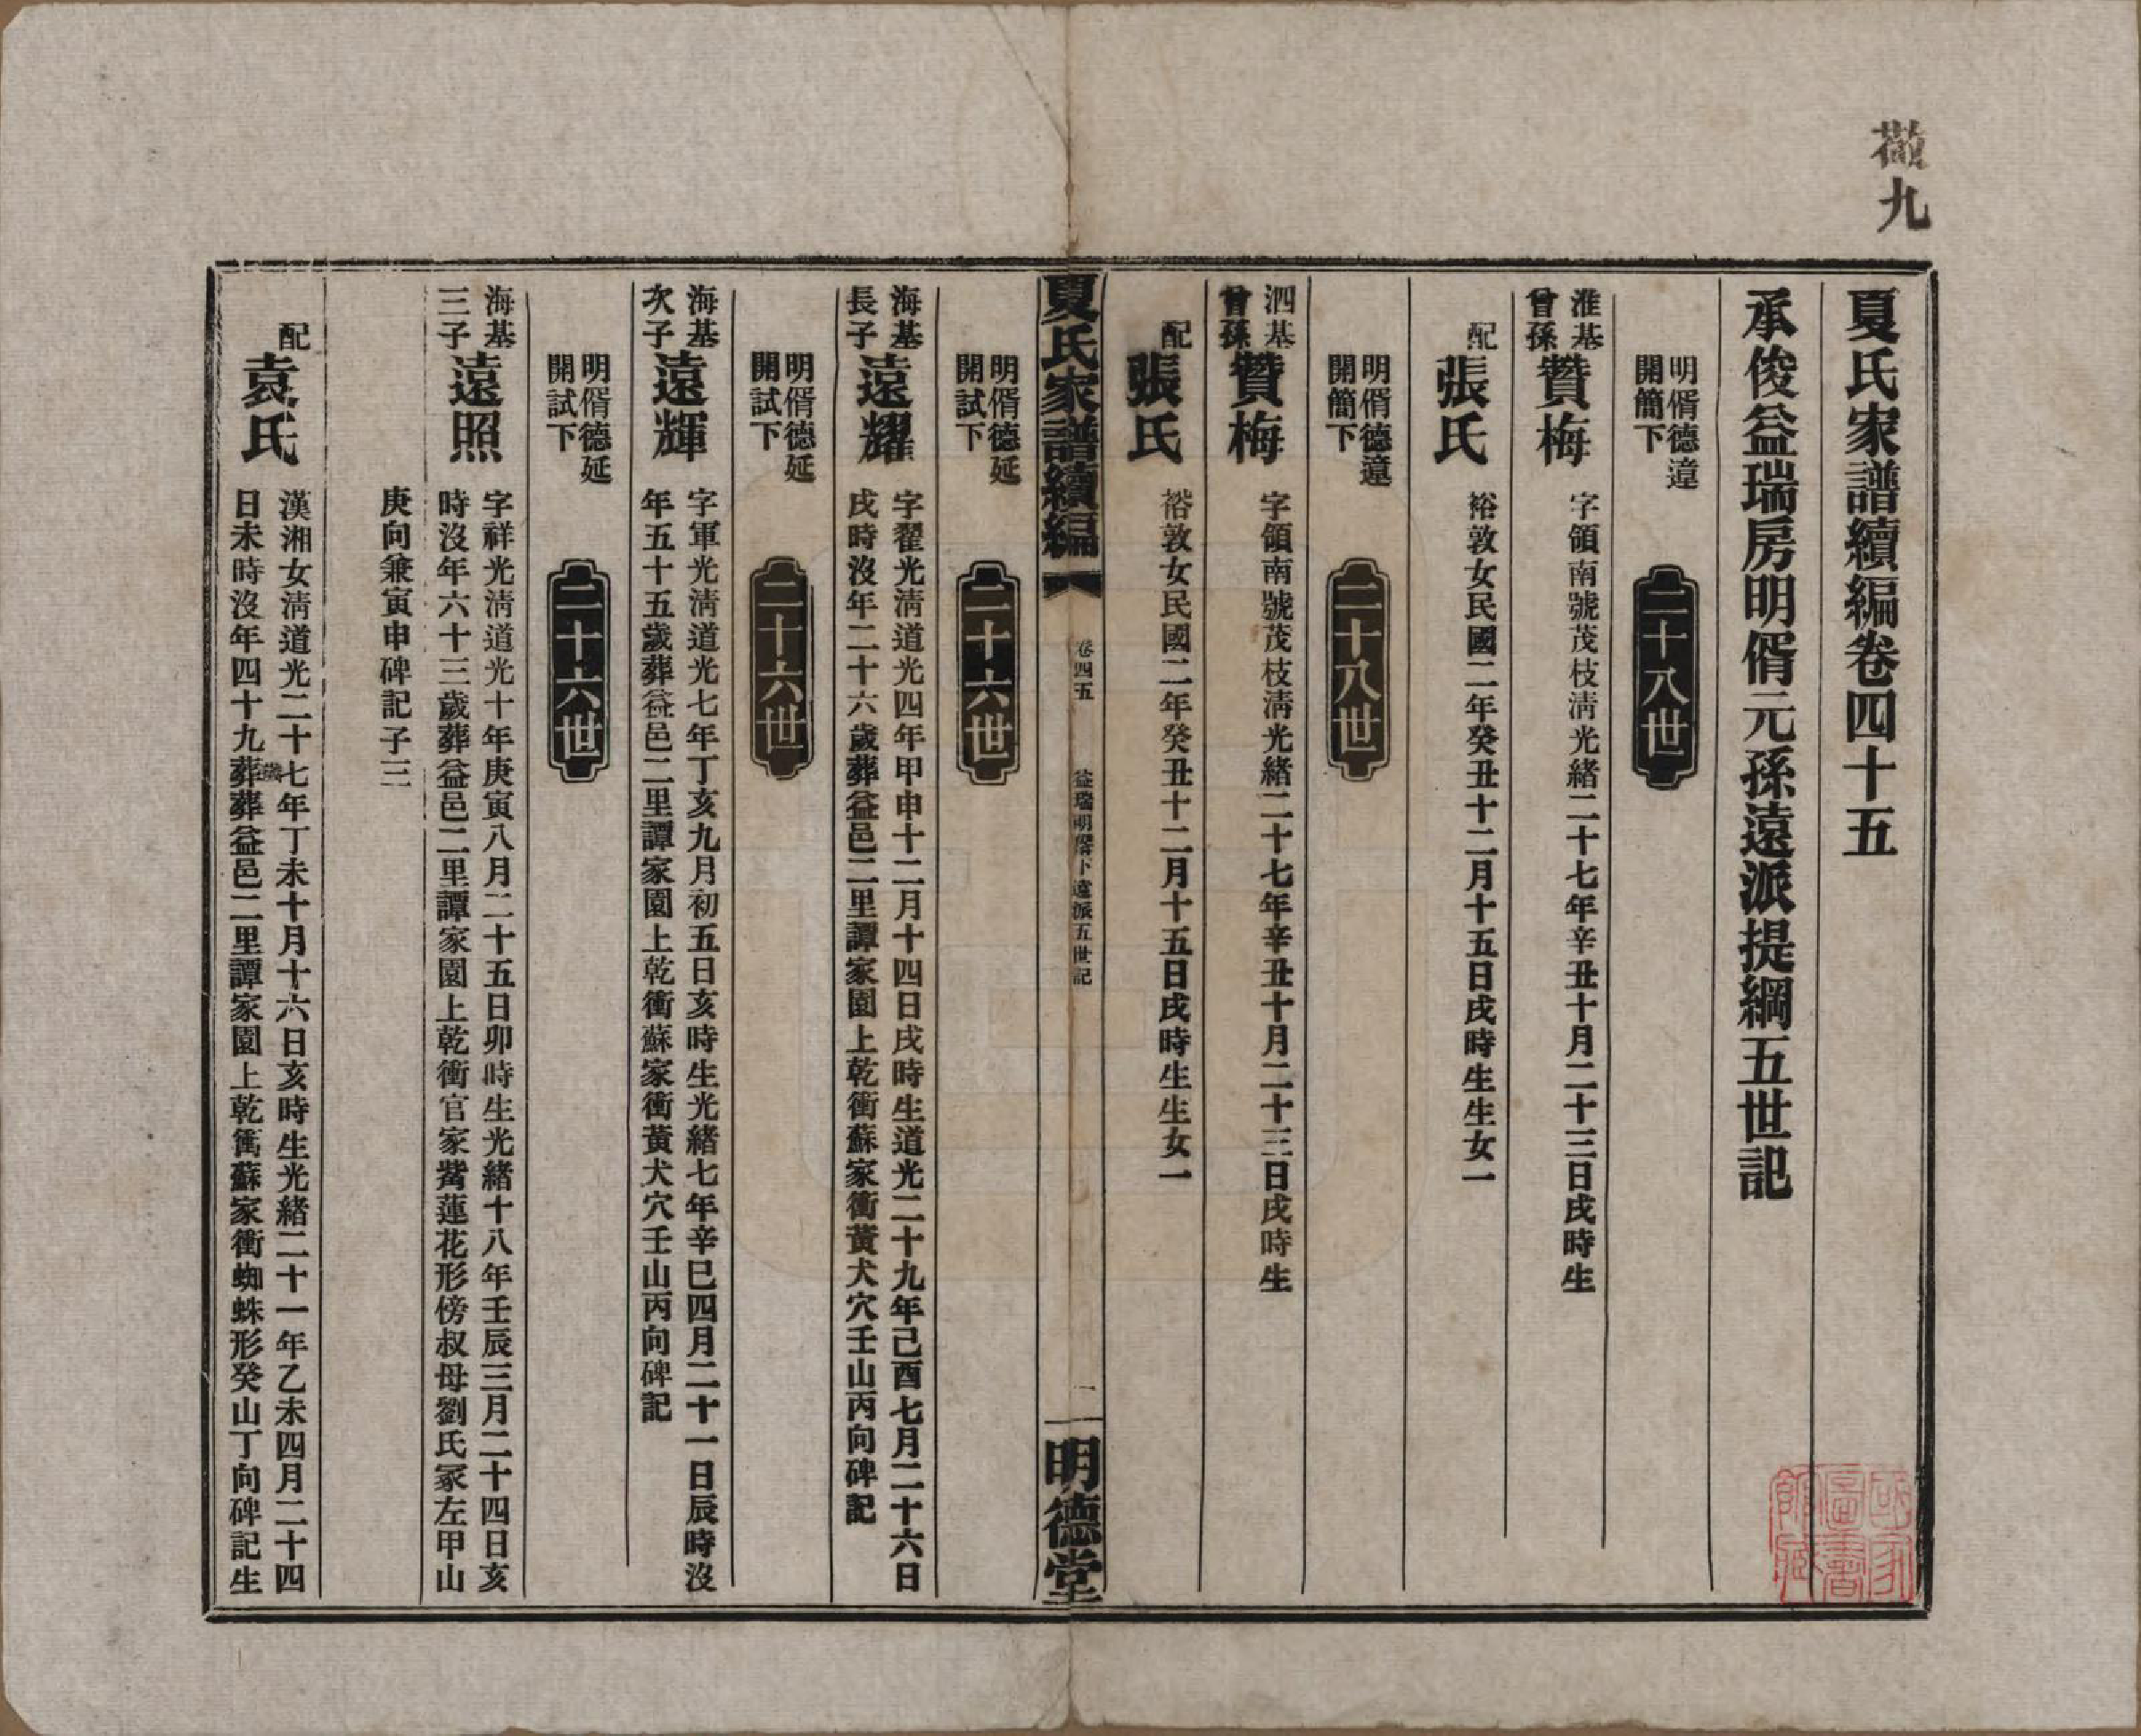 夏氏家譜續編卷四十五
承俊益瑞房明偦元孫遠派提綱五世記
明偦德遠
開簡下
二十八世
淮基
曾孫
贊梅
字領南號茂枝淸光緒二十七年辛丑十月二十三日戌時生
配
張氏
裕敦女民國二年癸丑十二月十五日戌時生生女一
明偦德遠
開簡下
二十八世
泗基
曾孫
贊梅
字領南號茂枝淸光緒二十七年辛丑十月二十三日戌時生
配
張氏
裕敦女民國二年癸丑十二月十五日戌時生生女一
夏氏家譜續編
卷四五
益瑞明偦下遠派五世記
一
明德堂
明偦德延
開試下
二十六世
海基
長子
遠耀
字翟光淸道光四年甲申十二月十四日戌時生道光二十九年己酉七月二十六日
戌時沒年二十六歲葬益邑二里譚家園上乾衝蘇家衝黃犬穴壬山丙向碑記
明偦德延
開試下
二十六世
海基
次子
遠輝
字軍光淸道光七年丁亥九月初五日亥時生光緒七年辛巳四月二十一日辰時沒
年五十五歲葬益邑二里譚家園上乾衝蘇家衝黃犬穴壬山丙向碑記
明偦德延
開試下
二十六世
海基
三子
遠照
字祥光淸道光十年庚寅八月二十五日卯時生光緒十八年壬辰三月二十四日亥
時沒年六十三歲葬益邑二里譚家園上乾衝官家嘴蓮花形傍叔母劉氏冢左甲山
庚向兼寅申碑記子三
配
袁氏
漢湘女淸道光二十七年丁未十月十六日亥時生光緒二十一年乙未四月二十四
日未時沒年四十九歲葬益邑二里譚家園上乾衝蘇家衝蜘蛛形癸山丁向碑記生
九